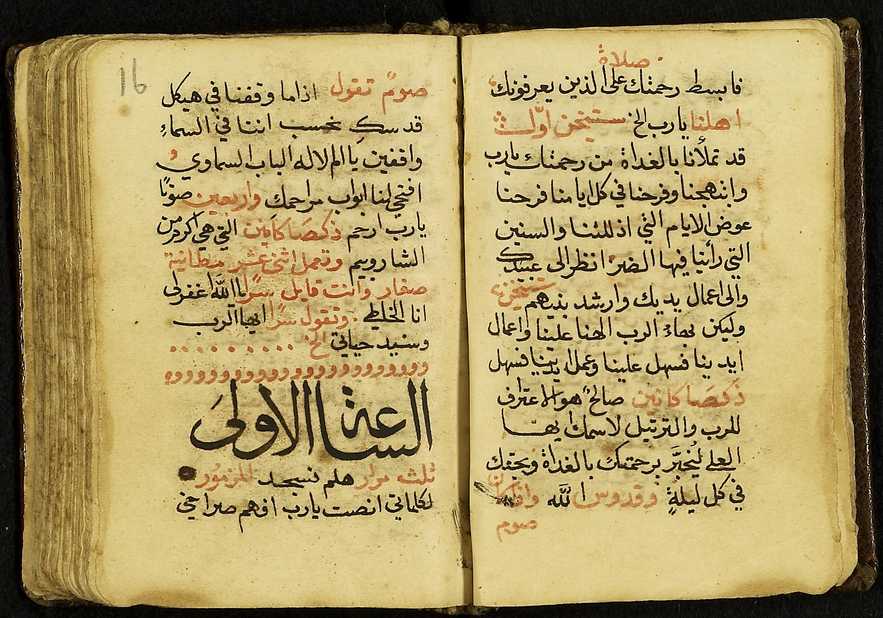 صلاة
فابسط رحمتك على الذين يعرفونك
اهلنا يارب الخ ستيخن اول
قد تملأنا بالغداة من رحمتك يارب
وابتهجنا وفرحنا في كل ايامنا فرحنا
عوض الايام التي اذللتنا والسنين
التي رأينا فيها الضر انظر الى عبيدك
والى اعمال يديك وارشد بنيهم ستيخن
وليكن بهاء الرب الهنا علينا واعمال
ايدينا فسهل علينا وعمل ايدينا فسهل
ذكصاكانين صالح هو الاعتراف
للرب والترتيل لاسمك ايها
العلي ليخبر برحمتك بالغداة وبحقك
في كل ليلة وقدوس الله
صوم
16
صوم تقول اذا ما وقفنا في هيكل
قدسك نحسب اننا في السماء
واقفين يا ام الاله الباب السماوي
افتحي لنا ابواب مراحمك واربعين صوتا
يارب ارحم ذكصاكانين التي هي اكرم من
الشاروبيم وتعمل اثني عشر مطانية
صغار وانت قايل سرا يا الله اغفر لي
انا الخاطي وتقول سرا ايها الرب
وسيد حياتي الخ
الساعة الاولى
ثلث مرار هلم نسجد المزمور
لكلماتي انصت يارب افهم صراخي